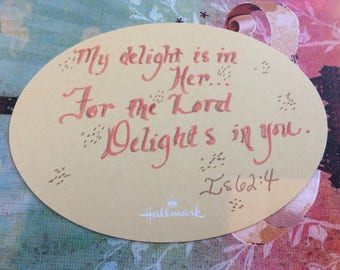 My delight is in
Her...
For the Lord
Delights in you.
Is 62:4
Hallmark